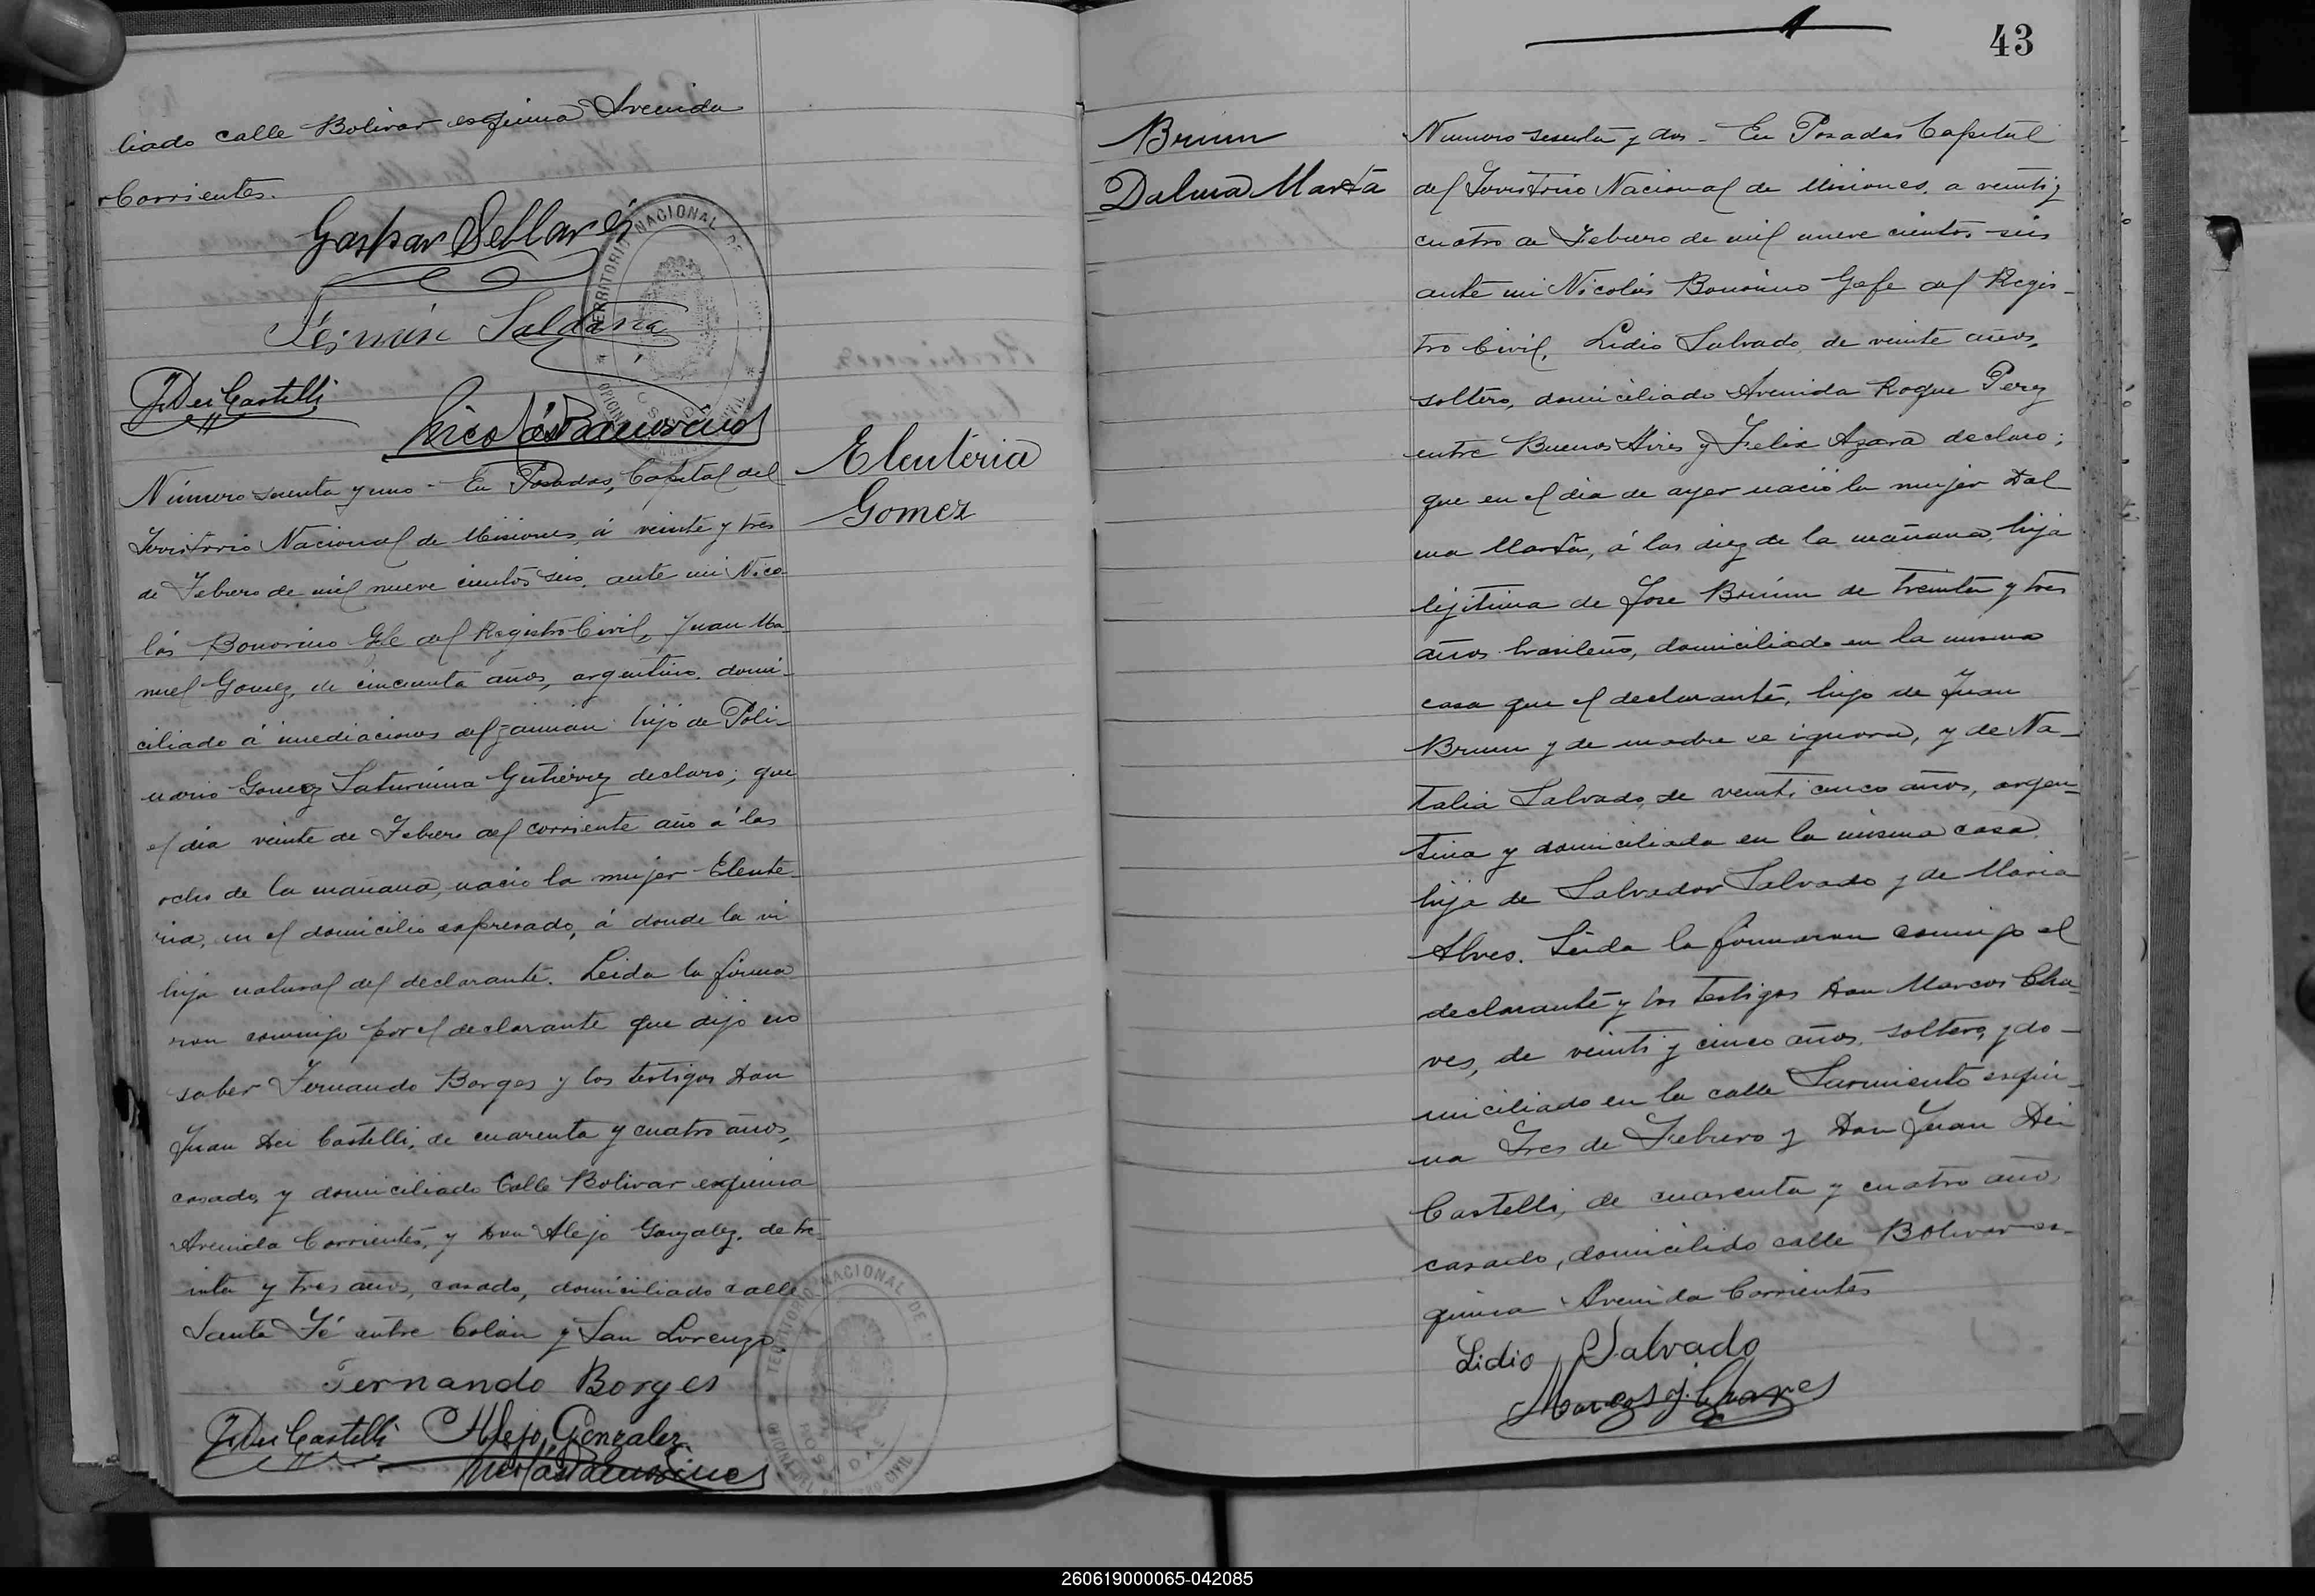 liado calle Bolivar esquina Avenida
Corrientes.
Gaspar Sellarés
Fermin Saldaña
J. Dei Castelli
Nicolás Bonorino
TERRITORIO NACIONAL DE
OFICINA CIVIL
Eleuteria
Gomez
Número sesenta y uno - En Posadas, Capital del
Territorio Nacional de Misiones, á veinte y tres
de Febrero de mil nueve cientos seis, ante mi Nico-
lás Bonorino Gfe del Registro Civil, Juan Ma-
nuel Gomez, de cincuenta años, argentino, domi-
ciliado á inmediaciones del zaiman hijo de Poli-
nario Gomez Saturnina Gutierrez declaro; que
el dia veinte de Febrero del corriente año á las
ocho de la mañana, nacio la mujer Eleute-
ria, en el domicilio espresado, á donde la vi
hija natural del declarante. Leida la firma-
ron conmigo por el declarante que dijo no
saber Fernando Borges y los testigos Don
Juan Dei Castelli, de cuarenta y cuatro años,
casado, y domiciliado Calle Bolivar esquina
Avenida Corrientes, y Don Alejo Gonzalez, de tre-
inta y tres años, casado, domiciliado calle
Santa Fé entre Colón y San Lorenzo.
Fernando Borges
J. Dei Castelli Alejo Gonzalez
Nicolás Bonorino
TERRITORIO NACIONAL DE
OFICINA DEL REGISTRO CIVIL
POSADAS
43
Brum
Dalma Marta
Numero sesenta y dos - En Posadas Capital
del Territorio Nacional de Misiones, a veinti y
cuatro de Febrero de mil nueve cientos seis
ante mi Nicolás Bonorino Gefe del Regis-
tro Civil, Lidio Salvado, de veinte años,
soltero, domiciliado Avenida Roque Perez
entre Buenos Aires y Felix Azara declaro;
que en el dia de ayer nació la mujer Dal
ma Marta, á las diez de la mañana, hija
lejitima de Jose Brum de treinta y tres
años brasileño, domiciliado en la misma
casa que el declarante, hijo de Juan
Brum y de madre se ignora, y de Na-
talia Salvado, de veinti cinco años, argen-
tina y domiciliada en la misma casa
hija de Salvador Salvado y de Maria
Alves. Leida la firmaron conmigo el
declarante y los testigos Don Marcos Cha-
ves, de veinti y cinco años, soltero, y do-
miciliado en la calle Sarmiento esqui-
na Tres de Febrero y Don Juan Dei
Castelli, de cuarenta y cuatro año
casado, domicilido calle Bolivar es-
quina Avenida Corrientes
Lidio Salvado
Marcos J. Chaves
260619000065-042085